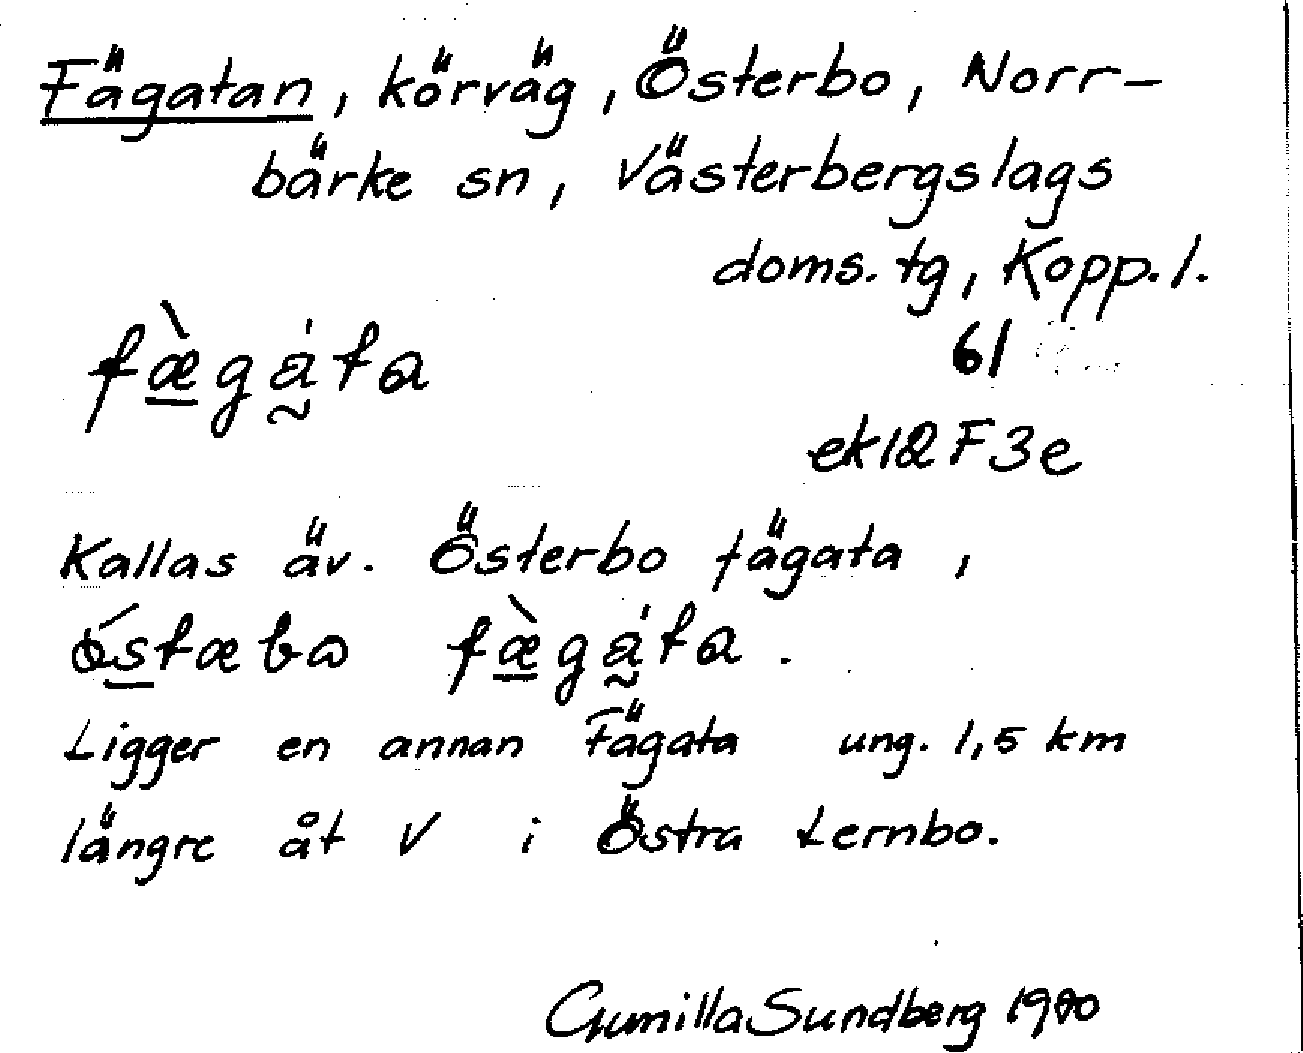 Fägatan, körväg, Österbo, Norr-
bärke sn, Västerbergslags
doms. tg, Kopp. l.
fæ̀gáta
61
ek 12 F 3e
Kallas äv. Österbo fägata,
ǿstæbɷ fæ̀gáta.
Ligger en annan Fägata ung. 1,5 km
längre åt V i Östra Lernbo.
Gunilla Sundberg 1980